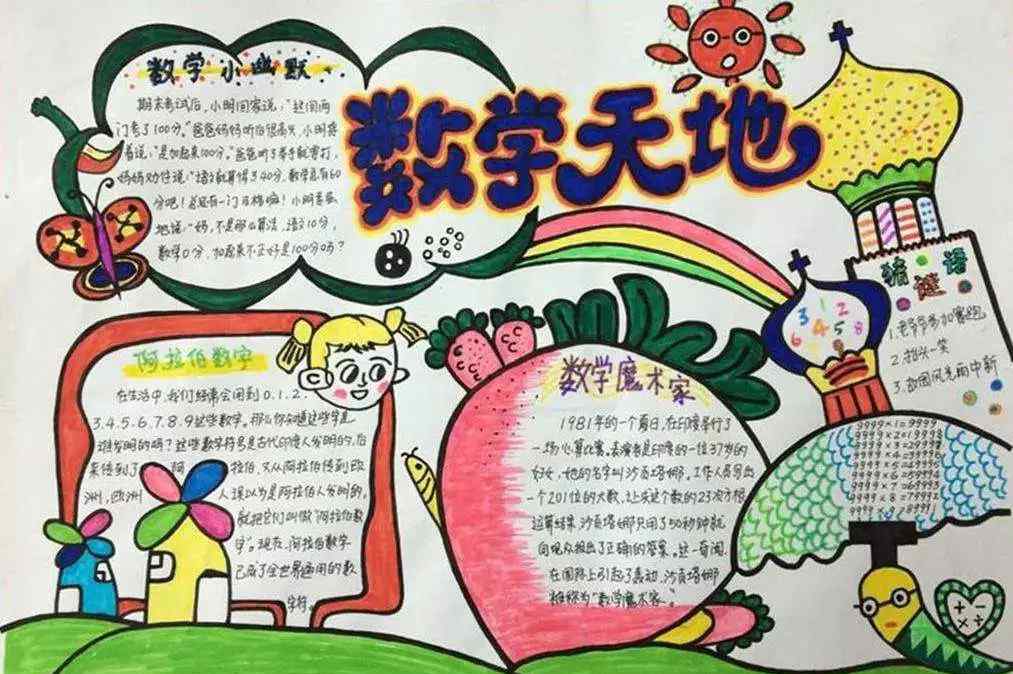 数学天地
数学小幽默
期末考试后，小明回家说："赶回两
门考了100分，"爸爸妈妈听后很高兴，小明接
着说："是加起来100分。"爸爸听了举手就要打，
妈妈劝住说："语文就算得了40分，数学总有60
分吧！总还有一门及格嘛！小明委屈
地说："妈，不是那么算法，语文10分，
数学0分，加起来不正好是100分吗？
阿拉伯数字
在生活中，我们经常会用到0.1.2.
3.4.5.6.7.8.9这些数字。那么你知道这些字是
谁发明的吗？这些数字符号是古代印度人发明的，后
来传到了阿拉伯，又从阿拉伯传到欧
洲，欧洲人误以为是阿拉伯人发明的，
就把它们叫做"阿拉伯数
字"。现在，阿拉伯数字
已成了全世界通用的数
字符。
数学魔术家
1981年的一个夏日，在印度举行了
一场心算比赛，表演者是印度的一位37岁的
妇女，她的名字叫沙贡塔娜。工作人员写出
一个201位的大数，让求这个数的23次方根
运算结果，沙贡塔娜只用了50秒钟就
向观众报出了正确的答案。这一奇闻
在国际上引起了轰动，沙贡塔娜
被称为"数学魔术家"。
3 1 2
6 4 5 8
猜谜语
1.老爷爷参加赛跑
2.抬头一笑
3.故国风光雨中新
9999×1=9999
9999×2=19998
+ -
× ÷